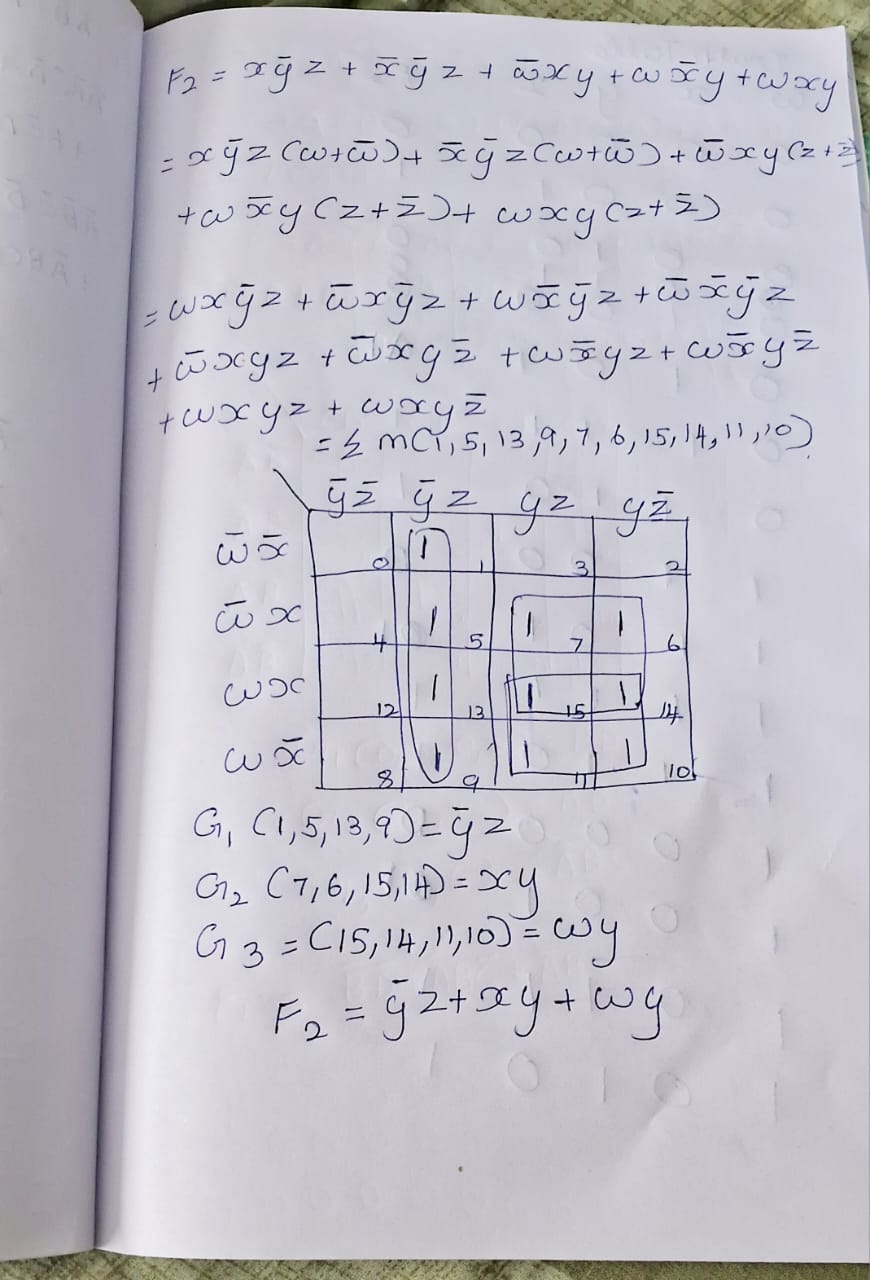 F₂ = xȳz + x̄ȳz + w̄xy + wx̄y + wxy
= xȳz(w+w̄) + x̄ȳz(w+w̄) + w̄xy(z+z̄)
+ wx̄y(z+z̄) + wxy(z+z̄)
= wxȳz + w̄xȳz + wx̄ȳz + w̄x̄ȳz
+ w̄xyz + w̄xyz̄ + wx̄yz + wx̄yz̄
+ wxyz + wxyz̄
= Σm(1,5,13,9,7,6,15,14,11,10)
ȳz̄ ȳz yz yz̄
w̄x̄ 0 1 1 3 2
w̄x 4 1 5 1 7 1 6
wx 12 1 13 1 15 1 14
wx̄ 8 1 9 1 11 1 10
G₁ (1,5,13,9) = ȳz
G₂ (7,6,15,14) = xy
G₃ = (15,14,11,10) = wy
F₂ = ȳz + xy + wy